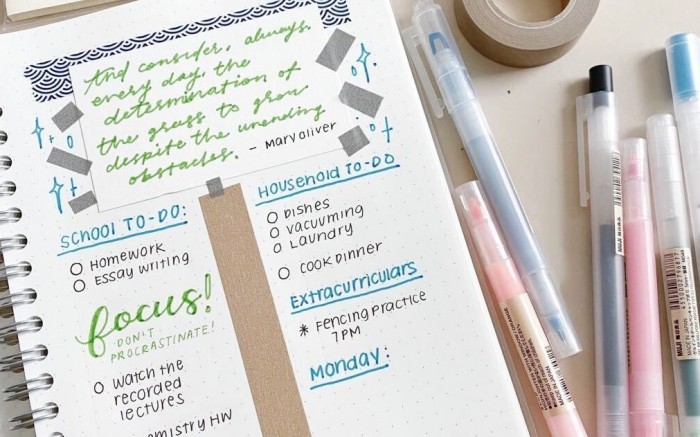 And consider, always,
every day, the
determination of
the grass to grow
despite the unending
obstacles. - Mary Oliver
SCHOOL TO-DO:
HOMEWORK
ESSAY WRITING
focus!
DON'T
PROCRASTINATE!
WATCH THE
RECORDED
LECTURES
HOUSEHOLD TO-DO
DISHES
VACUUMING
LAUNDRY
COOK DINNER
EXTRACURRICULARS
* FENCING PRACTICE
7PM
MONDAY:
MUJI
MUJI